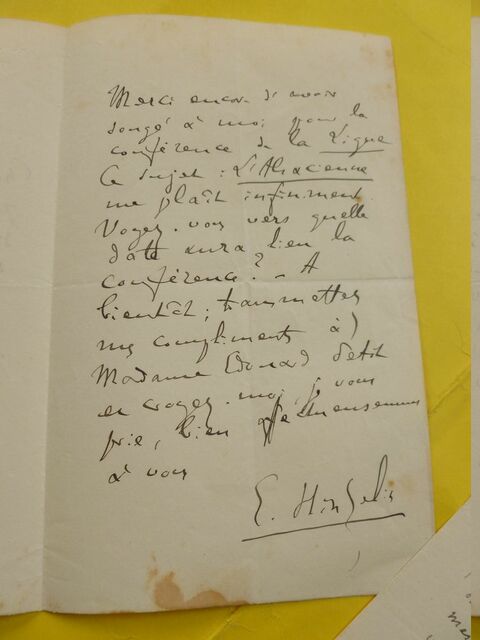 Merci encore d'avoir
songé à moi pour la
conférence de la Ligue
Ce sujet : L'Alsacienne
me plaît infiniment
Voyez-vous vers quelle
date aura lieu la
conférence? - A
bientôt; transmettez
mes compliments à
Madame Edouard Petit
et croyez-moi, je vous
prie, bien affectueusement
à vous
E. Hinzelin